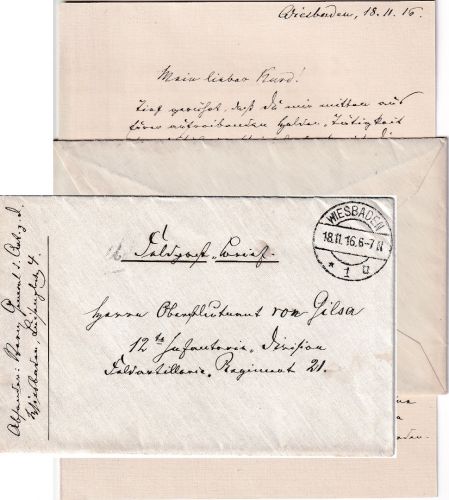 Wiesbaden, 18.11.16.
Mein lieber Kurd!
Tief gerührt, daß du mir mitten aus
Eurer aufreibenden Helden-Tätigkeit
WIESBADEN
18.11.16.6-7N
* 1 u
Feldpost-Brief.
Herrn Oberstleutnant von Gilsa
12te Infanterie-Division
Feldartillerie-Regiment 21.
Absender: General d. Art. z. D.
Wiesbaden,